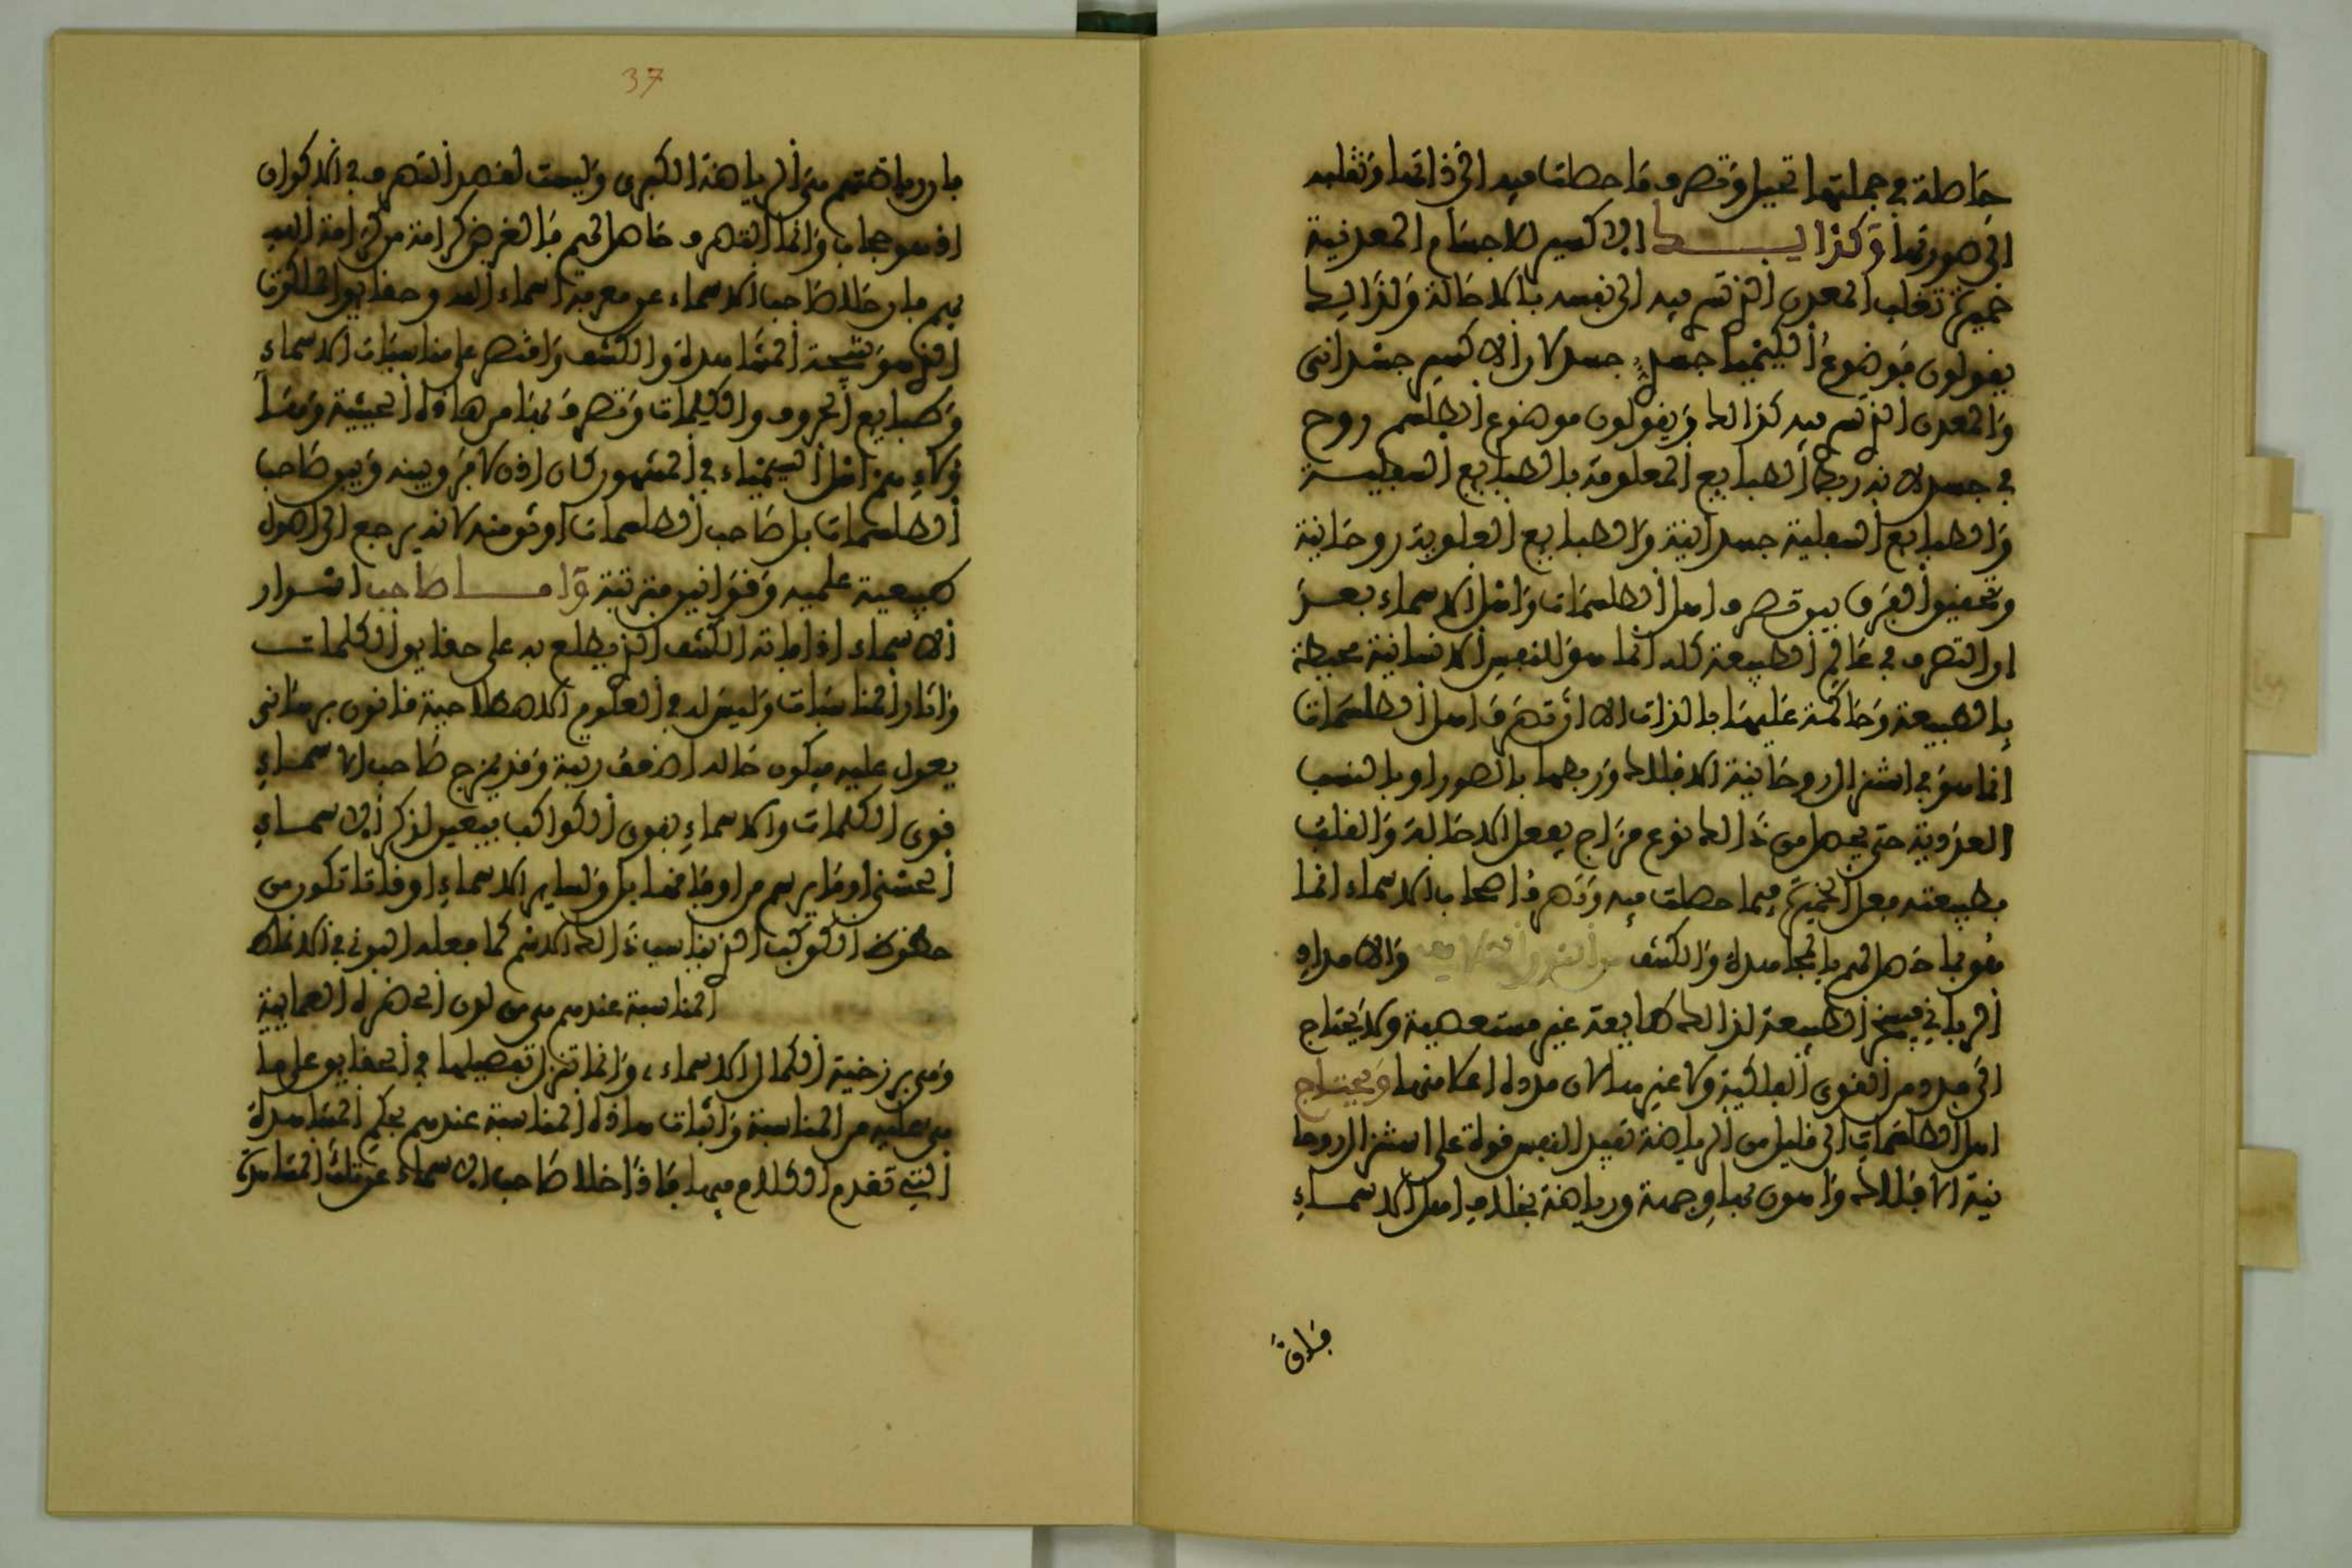 حاصلة في جملتها تحيل وتصرف ما حصلت فيه الى ذاتها وتقلبه
الى صورتها وكذالك الاكسير للاجسام المعدنية
خميرة تقلب المعدن الذي تسري فيه الى نفسه بالاحالة ولذالك
يقولون موضوع الكيمياء جسد في جسد لان الاكسير جسداني
والمعدن الذي تسري فيه كذالك ويقولون موضوع الطلسم روح
في جسد لانه ربط الطبايع العلوية بالطبايع السفلية
والطبايع السفلية جسدانية والطبايع العلوية روحانية
وتحقيق الفرق بين تصرف اهل الطلسمات واهل الاسماء بعد
ان التصرف في عالم الطبيعة كله انما هو للنفس الانسانية محيطة
بالطبيعة وحاكمة عليها بالذات الا ان تصرف اهل الطلسمات
انما هو في استنزال روحانية الافلاك وربطها بالصور او بالنسب
العددية حتى يحصل من ذالك نوع مزاج يفعل الاحالة والقلب
بطبيعته فعل الخميرة فيما حصلت فيه وتصرف اصحاب الاسماء انما
هو بما حصل لهم بالمجاهدة والكشف من النور الالاهي والامداد
الرباني فيسخر الطبيعة لذالك طايعة غير مستعصية ولا يحتاج
الى مدد من القوى الفلكية ولا غيرها لان مدده اعلا منها ويحتاج
اهل الطلسمات الى قليل من الرياضة تفيد النفس قوة على استنزال روحا
نية الافلاك واهون بها وجهة ورياضة بخلاف اهل الاسماء
فان
37
فان رياضتهم هي الرياضة الكبرى وليست لقصد التصرف في الاكوان
اذ هو حجاب وانما التصرف حاصل لهم بالعرض كرامة من كرامة الله
بهم فان خلا صاحب الاسماء عن معرفة اسماء الله وحقايق الملكوت
الذي هو نتيجة المشاهدة والكشف واقتصر على مناسبات الاسماء
وطبايع الحروف والكلمات وتصرف بها من هاذه الحيثية وها
ولاء هم اهل السيمياء في المشهور كان اذن لا فرق بينه وبين صاحب
الطلسمات بل صاحب الطلسمات اوثق منه لانه يرجع الى اصول
طبيعية علمية وقوانين مترتبة واما صاحب اسرار
الاسماء اذا فاته الكشف الذي يطلع به على حقايق الكلمات
واثار المناسبات وليس له في العلوم الاصطلاحية قانون برهاني
يعول عليه فيكون حاله اضعف رتبة وقد يمزج صاحب الاسماء
قوى الكلمات والاسماء بقوى الكواكب فيعين لذكر الاسماء
الحسنى او ما يرسم من اوفاقها بل ولساير الاسماء اوقاتا تكون من
حظوظ الكوكب الذي يناسب ذالك الاسم كما فعله البوني في الانماط
المناسبة عندهم هي من لدن الحضرة العمايية
وهي برزخية الكمال الاسماء، وانما تنزل تفصيلها في الحقايق على ما
هي عليه من المناسبة واثبات هاذه المناسبة عندهم بحكم المشاهدة
التي تقدم الكلام فيها فاذا خلا صاحب الاسماء عن تلك المشاهدة